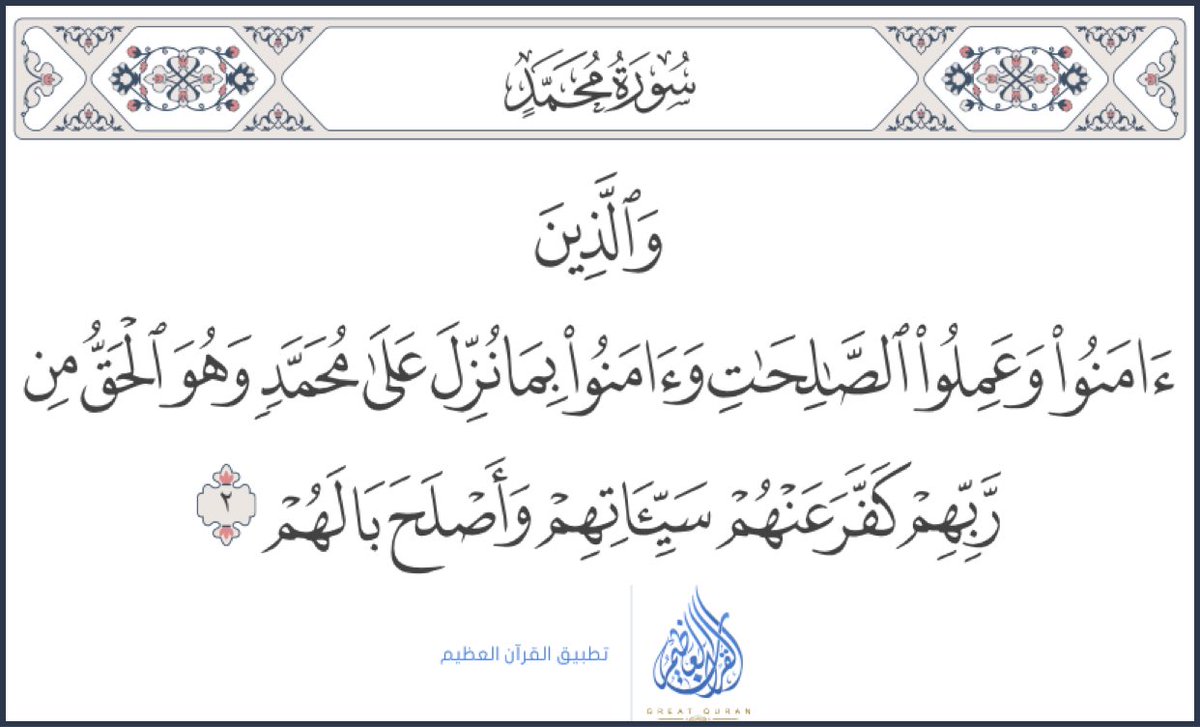 سُورَةُ مُحَمَّدٍ
وَٱلَّذِينَ
ءَامَنُوا۟ وَعَمِلُوا۟ ٱلصَّـٰلِحَـٰتِ وَءَامَنُوا۟ بِمَا نُزِّلَ عَلَىٰ مُحَمَّدٍ وَهُوَ ٱلْحَقُّ مِن
رَّبِّهِمْ كَفَّرَ عَنْهُمْ سَيِّـَٔاتِهِمْ وَأَصْلَحَ بَالَهُمْ ٢
تطبيق القرآن العظيم
القرآن العظيم
GREAT QURAN